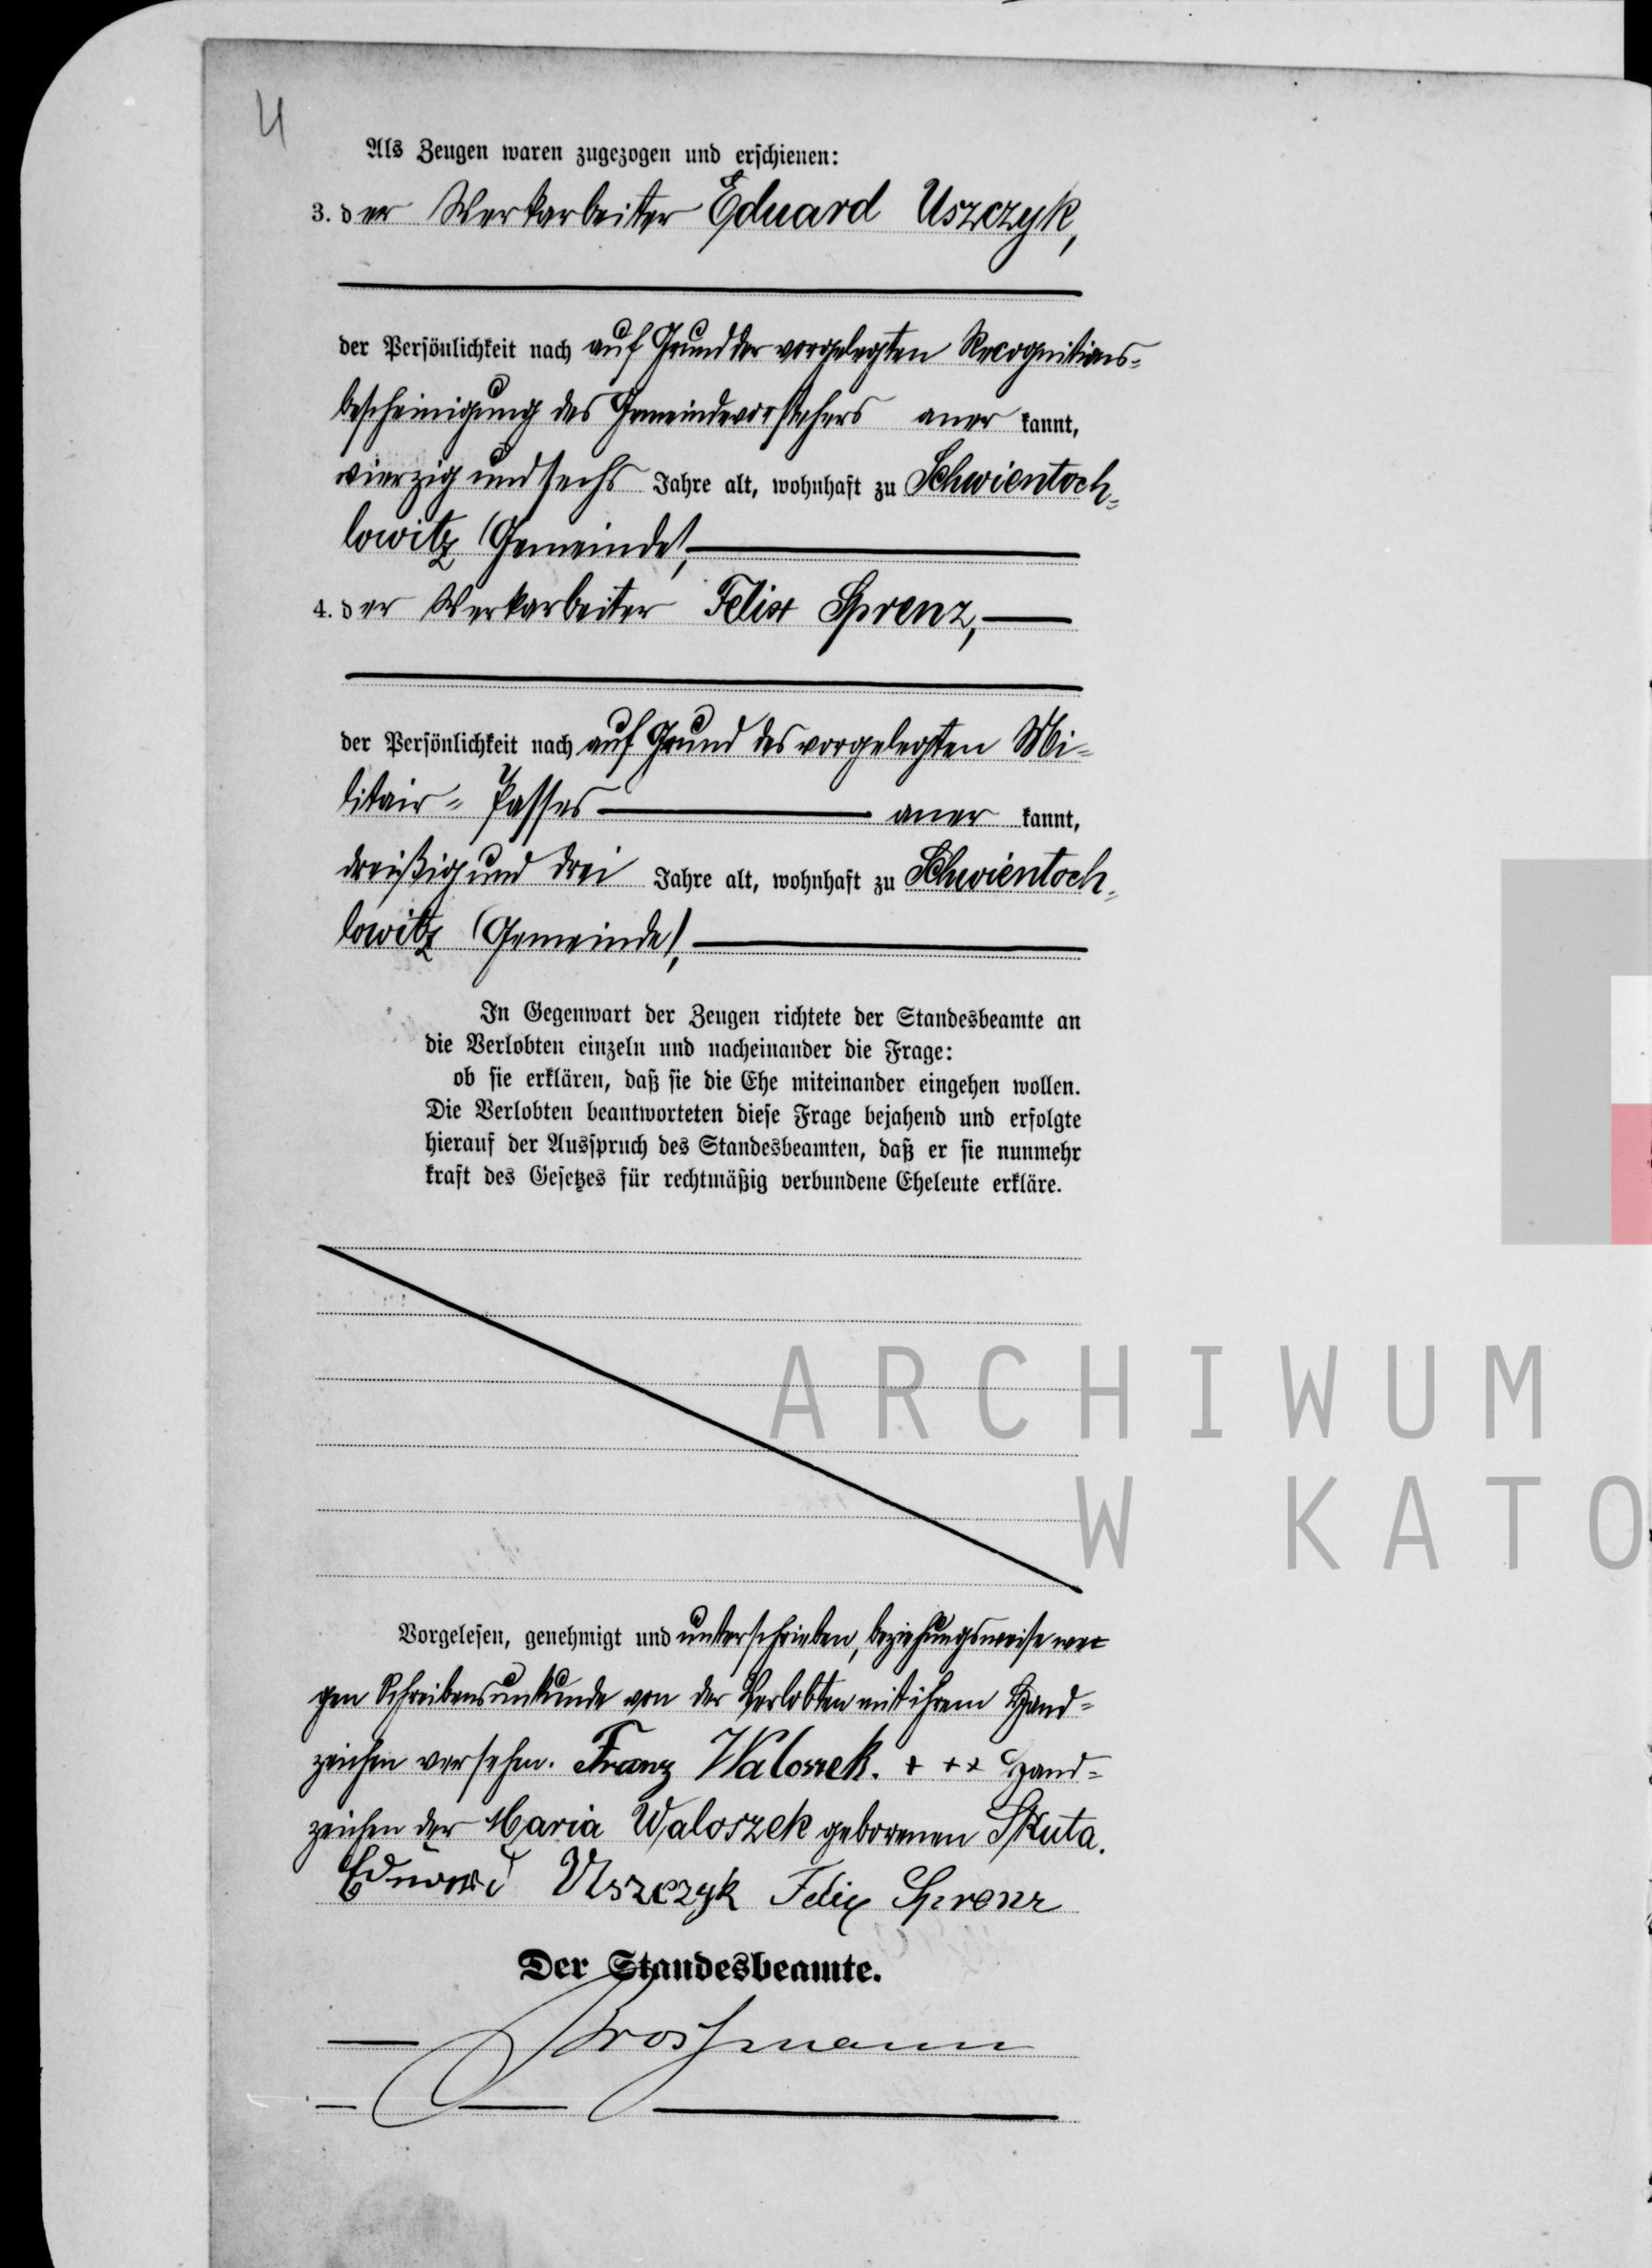 4
Als Zeugen waren zugezogen und erschienen:
3. der Werkarbeiter Eduard Uszczyk,
der Persönlichkeit nach auf Grund der vorgelegten Recognitions-
bescheinigung des Gemeindevorstehers aner kannt,
vierzig und sechs Jahre alt, wohnhaft zu Schwientoch-
lowitz (Gemeinde),
4. der Werkarbeiter Felix Sprenz,
der Persönlichkeit nach auf Grund des vorgelegten Mi-
litair- Passes aner kannt,
dreißig und drei Jahre alt, wohnhaft zu Schwientoch-
lowitz (Gemeinde),
In Gegenwart der Zeugen richtete der Standesbeamte an
die Verlobten einzeln und nacheinander die Frage:
ob sie erklären, daß sie die Ehe miteinander eingehen wollen.
Die Verlobten beantworteten diese Frage bejahend und erfolgte
hierauf der Ausspruch des Standesbeamten, daß er sie nunmehr
kraft des Gesetzes für rechtmäßig verbundene Eheleute erkläre.
ARCHIWUM
W KATO
Vorgelesen, genehmigt und unterschrieben, beziehungsweise we-
gen Schreibensunkunde von der Verlobten mit ihrem Hand-
zeichen versehen. Franz Waloszek. + ++ Hand-
zeichen der Maria Waloszek geborenen Skuta.
Eduard Uszczyk Felix Sprenz
Der Standesbeamte.